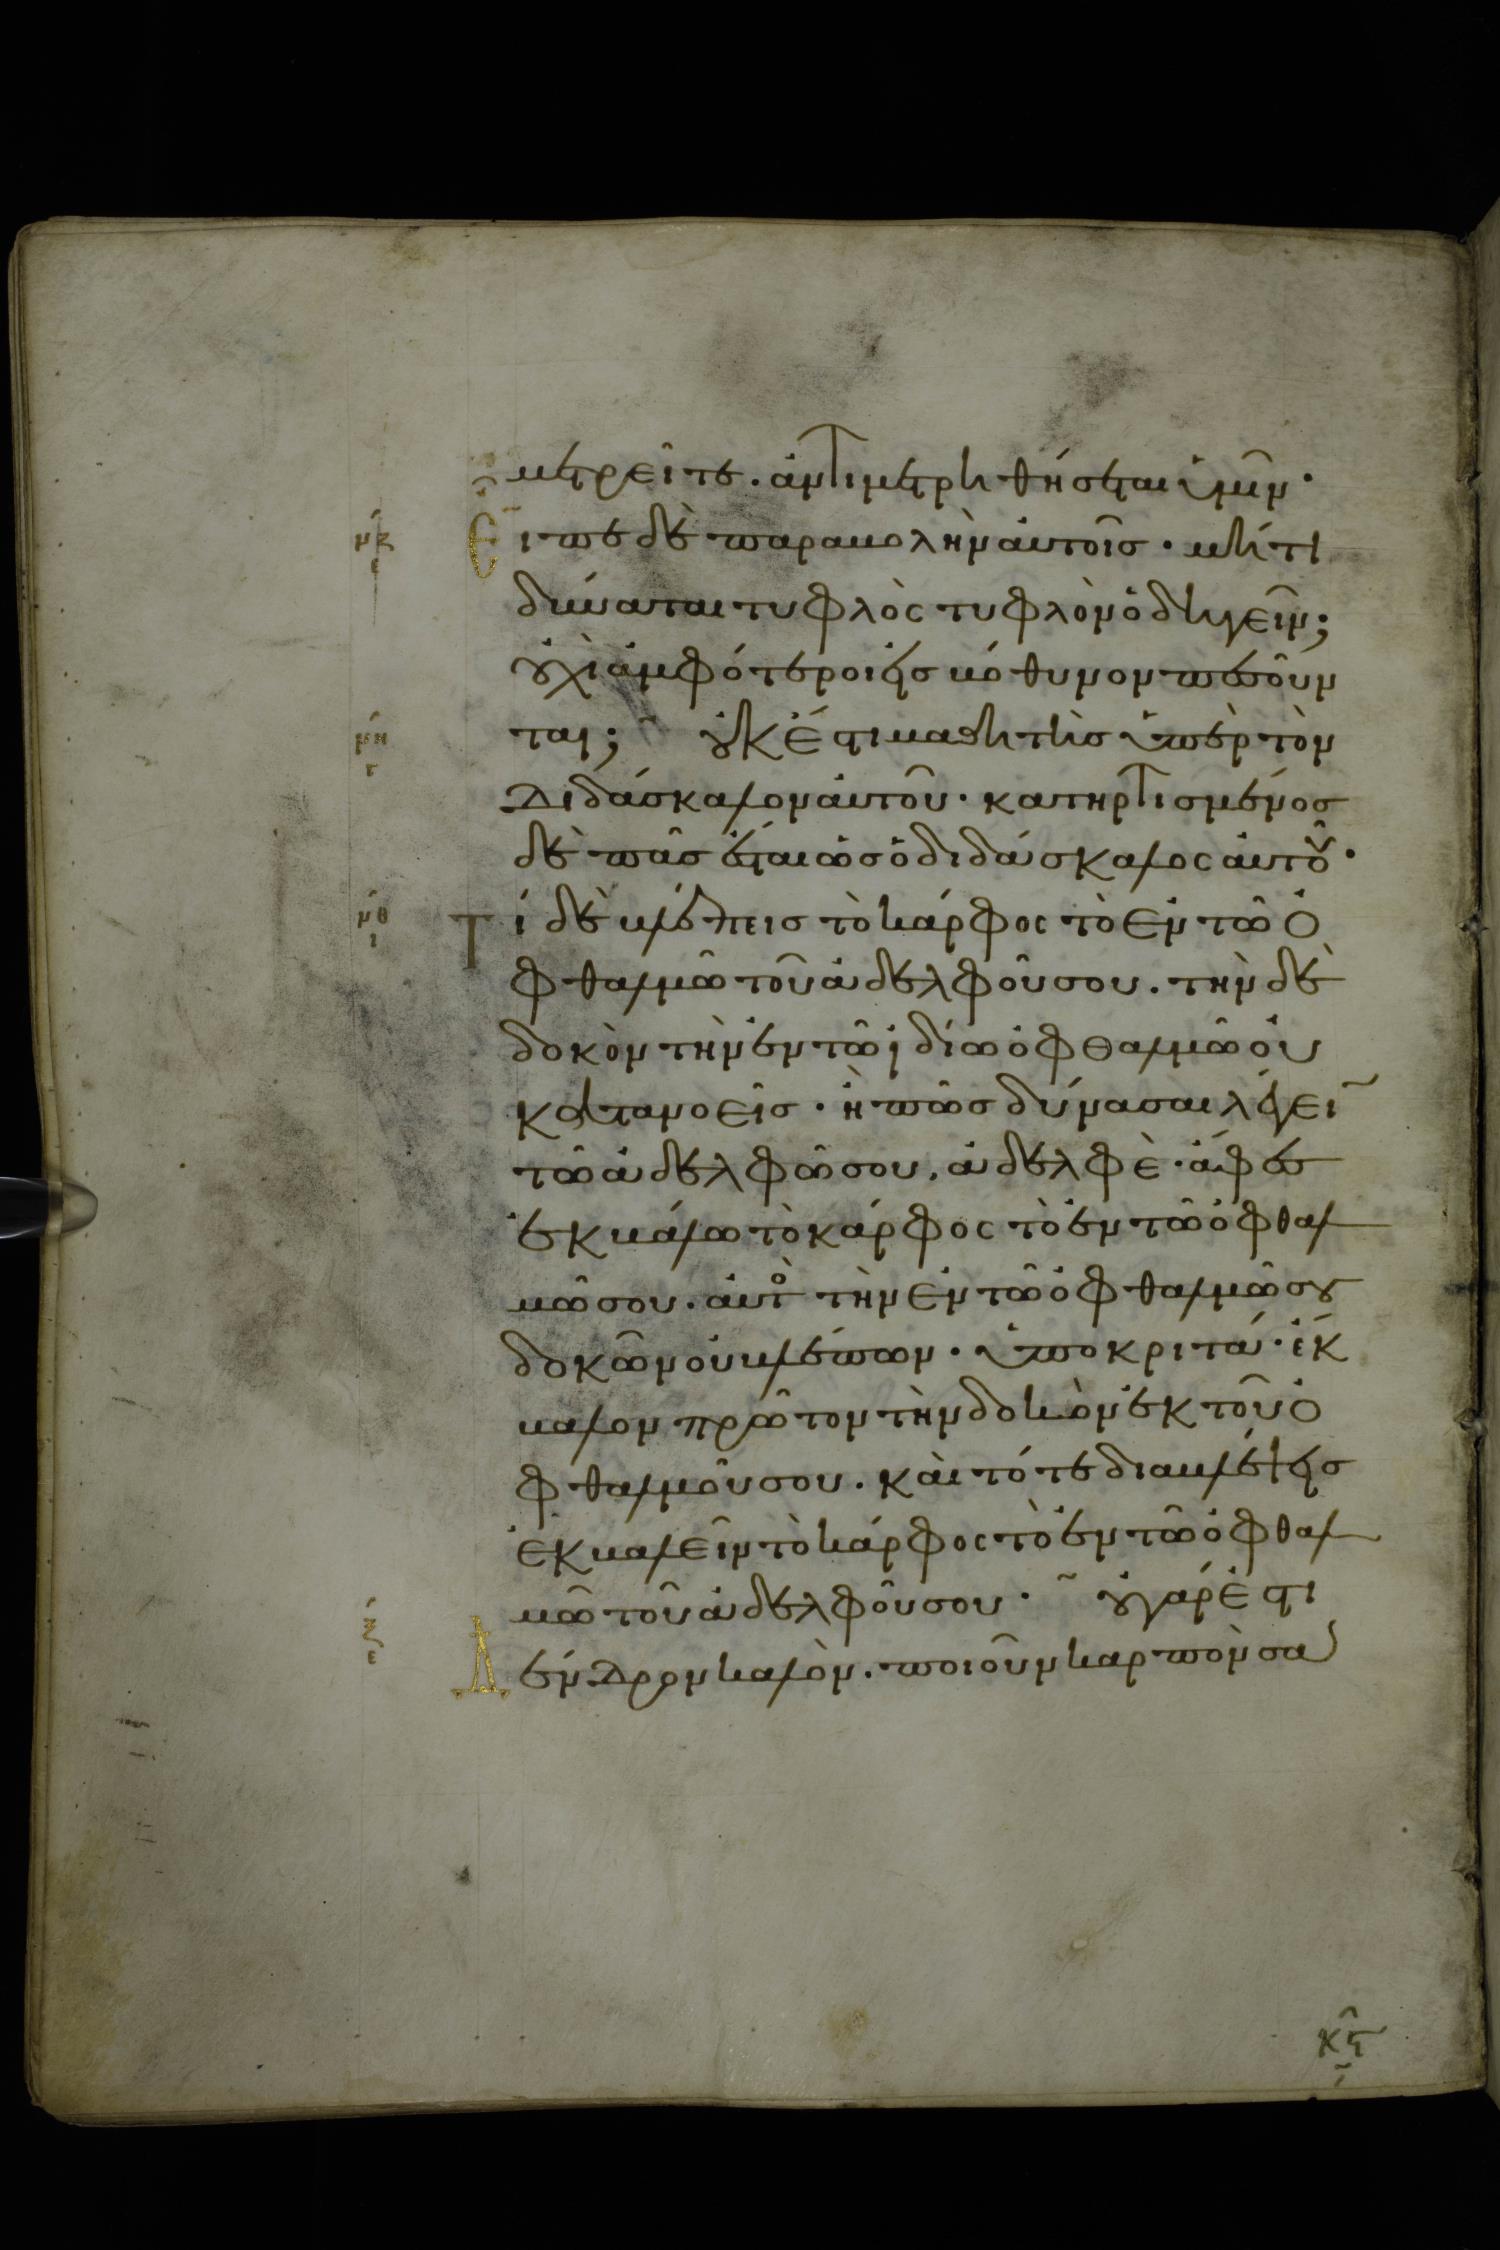 μετρεῖτε. ἀντιμετρηθήσεται ὑμῖν·
μζ Εἶπε δὲ παραβολὴν αὐτοῖς· μήτι
ε
δύναται τυφλὸς τυφλὸν ὁδηγεῖν;
οὐχὶ ἀμφότεροι εἰς βόθυνον πεσοῦν
μη ται; οὐκ ἔστι μαθητὴς ὑπὲρ τὸν
γ
διδάσκαλον αὐτοῦ· κατηρτισμένος
δὲ πᾶς ἔσται ὡς ὁ διδάσκαλος αὐτοῦ·
μθ Τί δὲ βλέπεις τὸ κάρφος τὸ ἐν τῶ ὀ
ι
φθαλμῶ τοῦ ἀδελφοῦ σου. τὴν δὲ
δοκὸν τὴν ἐν τῶ ἰδίω ὀφθαλμῶ οὐ
κατανοεῖς· ἢ πῶς δύνασαι λέγει
τῶ ἀδελφῶ σου. ἀδελφὲ· ἄφες
ἐκβάλω τὸ κάρφος τὸ ἐν τῶ ὀφθαλ
μῶ σου. αὐτὸ τὴν ἐν τῶ ὀφθαλμῶ σου
δοκῶν οὐ βλέπων· ὑποκριτά· ἔκ
βαλον πρῶτον τὴν δοκὸν ἐκ τοῦ ὀ
φθαλμοῦ σου. καὶ τότε διαβλέψεις
ἐκβαλεῖν τὸ κάρφος τὸ ἐν τῶ ὀφθαλ
μῶ τοῦ ἀδελφοῦ σου· οὐ γάρ ἐστι
ξ Δένδρον καλὸν. ποιοῦν καρπὸν σα
ε
κϛ